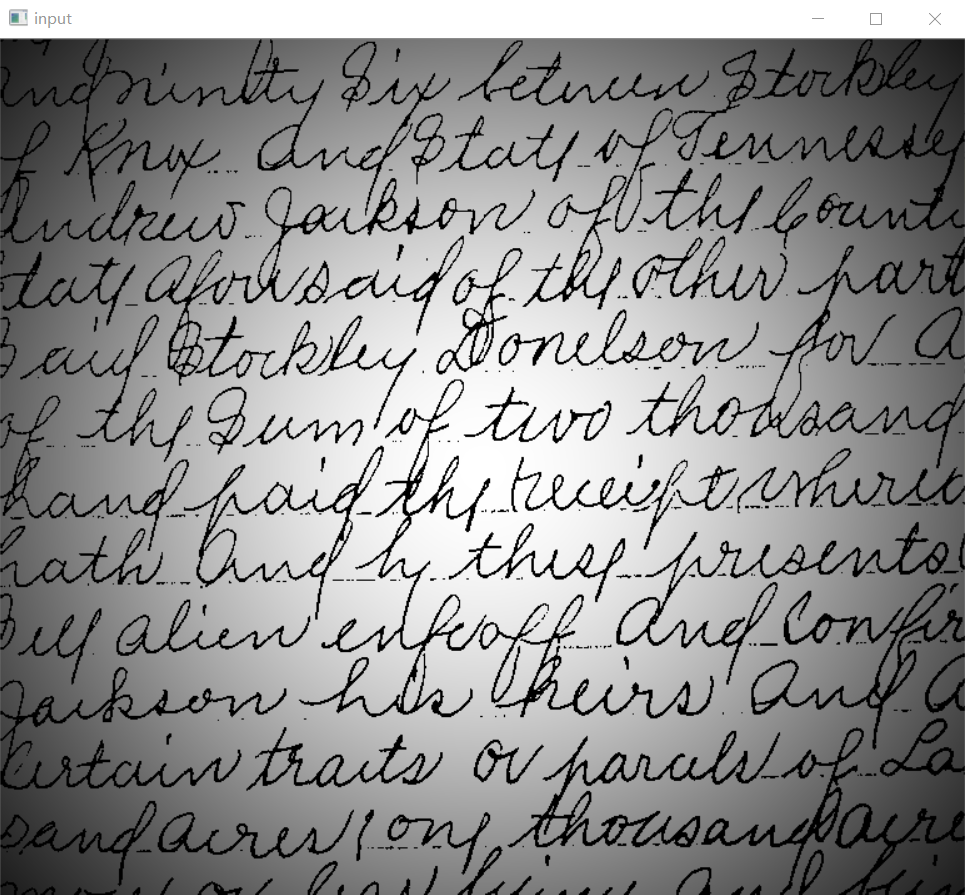 input
and ninty Six between Stockley
of Knox And State of Tennessey
Andrew Jackson of the Count
tate aforesaid of the other part
aid Stockley Donelson for a
of the Sum of two thousand
hand paid the receipt where
hath And by these presents
Sell alien enfeoff And Confir
Jackson his heirs And a
certain tracts or parcels of La
sand acres one thousand acre